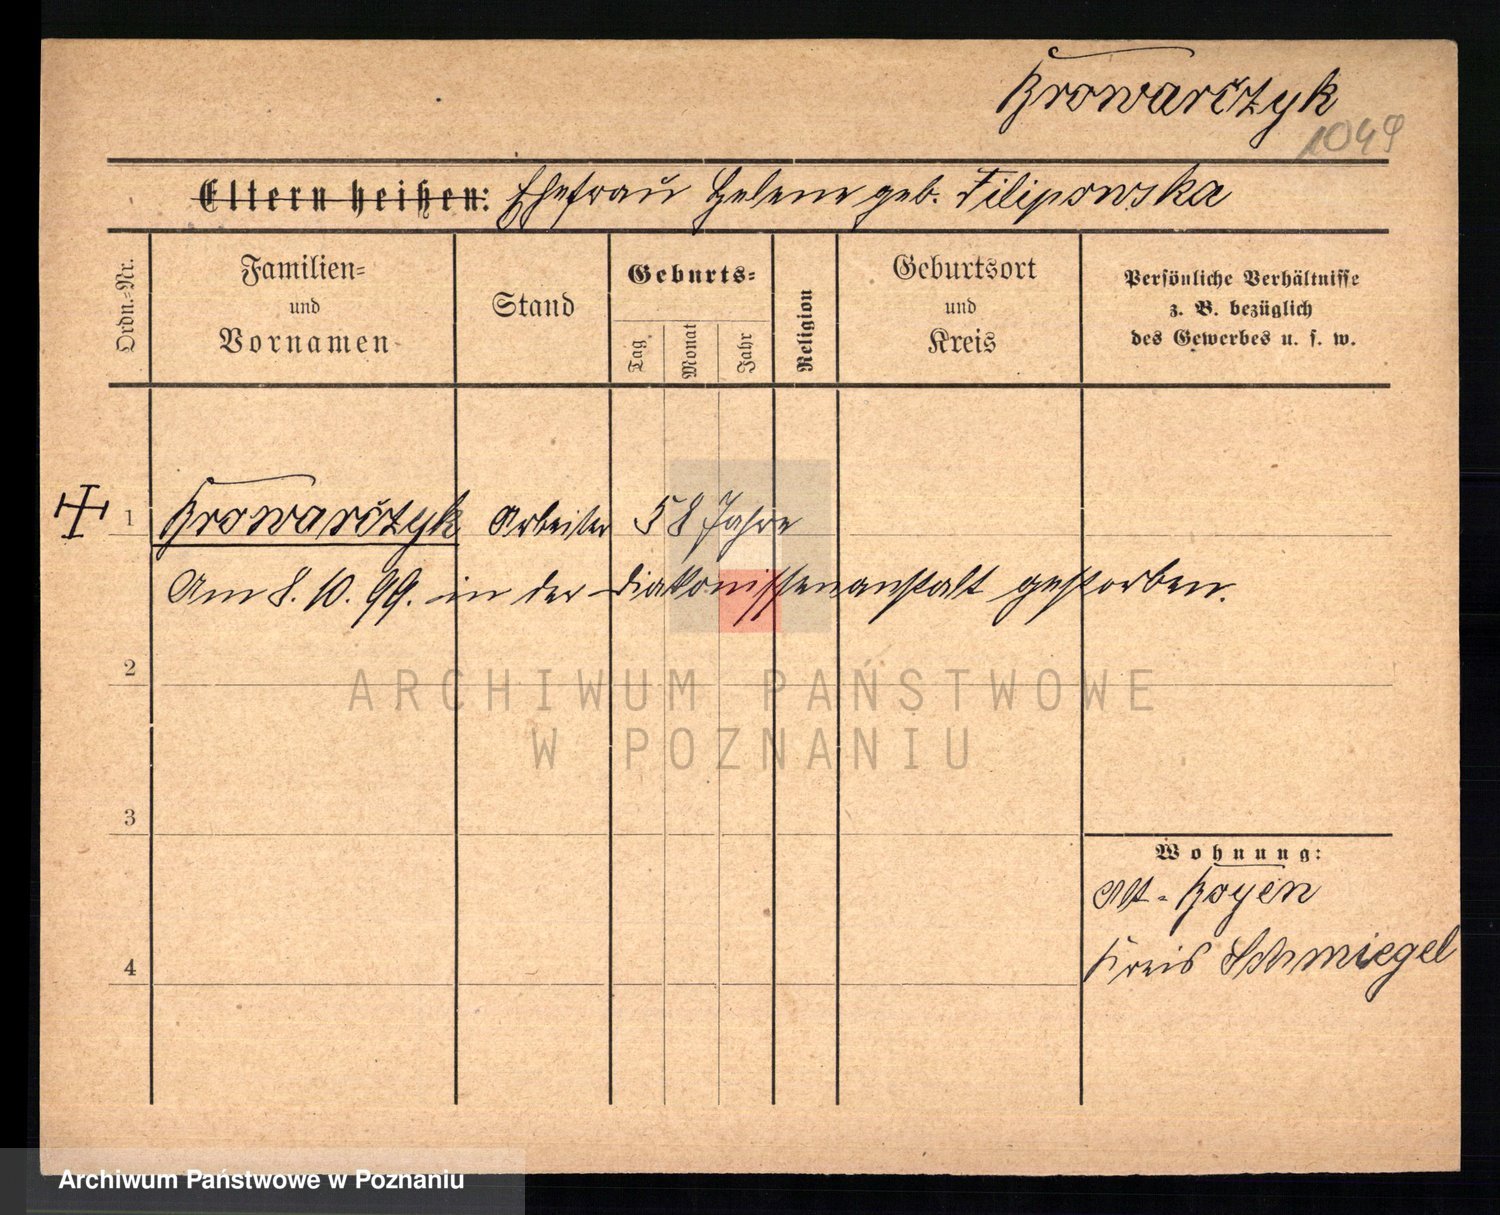 Krowarczyk
1049
Eltern heißen: Ehefrau Helene geb. Filipowska
Ordn.-Nr.
Familien-
und
Vornamen
Stand
Geburts-
Tag
Monat
Jahr
Religion
Geburtsort
und
Kreis
Persönliche Verhältnisse
z. B. bezüglich
des Gewerbes u. s. w.
1 Krowarczyk Arbeiter 58 Jahre
Am 8. 10. 99. in der Diakonissenanstalt gestorben.
2
ARCHIWUM PAŃSTWOWE
W POZNANIU
3
Wohnung:
Alt-Boyen
Kreis Schmiegel
4
Archiwum Państwowe w Poznaniu